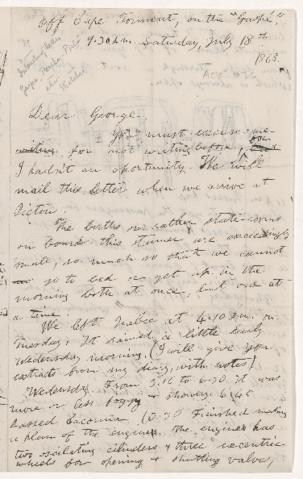 Off Cape Torment, on the "Gaspé".
9.30 a.m. Saturday, July 18th
1868.
Dear George,
You must excuse me
for not writing before, for
I hadn't an oportunity. We will
mail this letter when we arrive at
Pictou.
The births or rather state-rooms
on board this steamer are exceedingly
small, so much so that we cannot
go to bed or get up in the
morning both at once, but one at
a time.
We left Quebec at 4.10 p.m. on
Tuesday. It rained a little early
Wednesday morning. (I will give you
extracts from my diary, with notes)
Wednesday. From 3.15 to 6.30 it was
more or less foggy & showery. 6.45
passed Bacorian. 10.30 Finished making
a plan of the engines. the engine has
two oscilating cilinders & three excentric
wheels for opening & shutting valves,